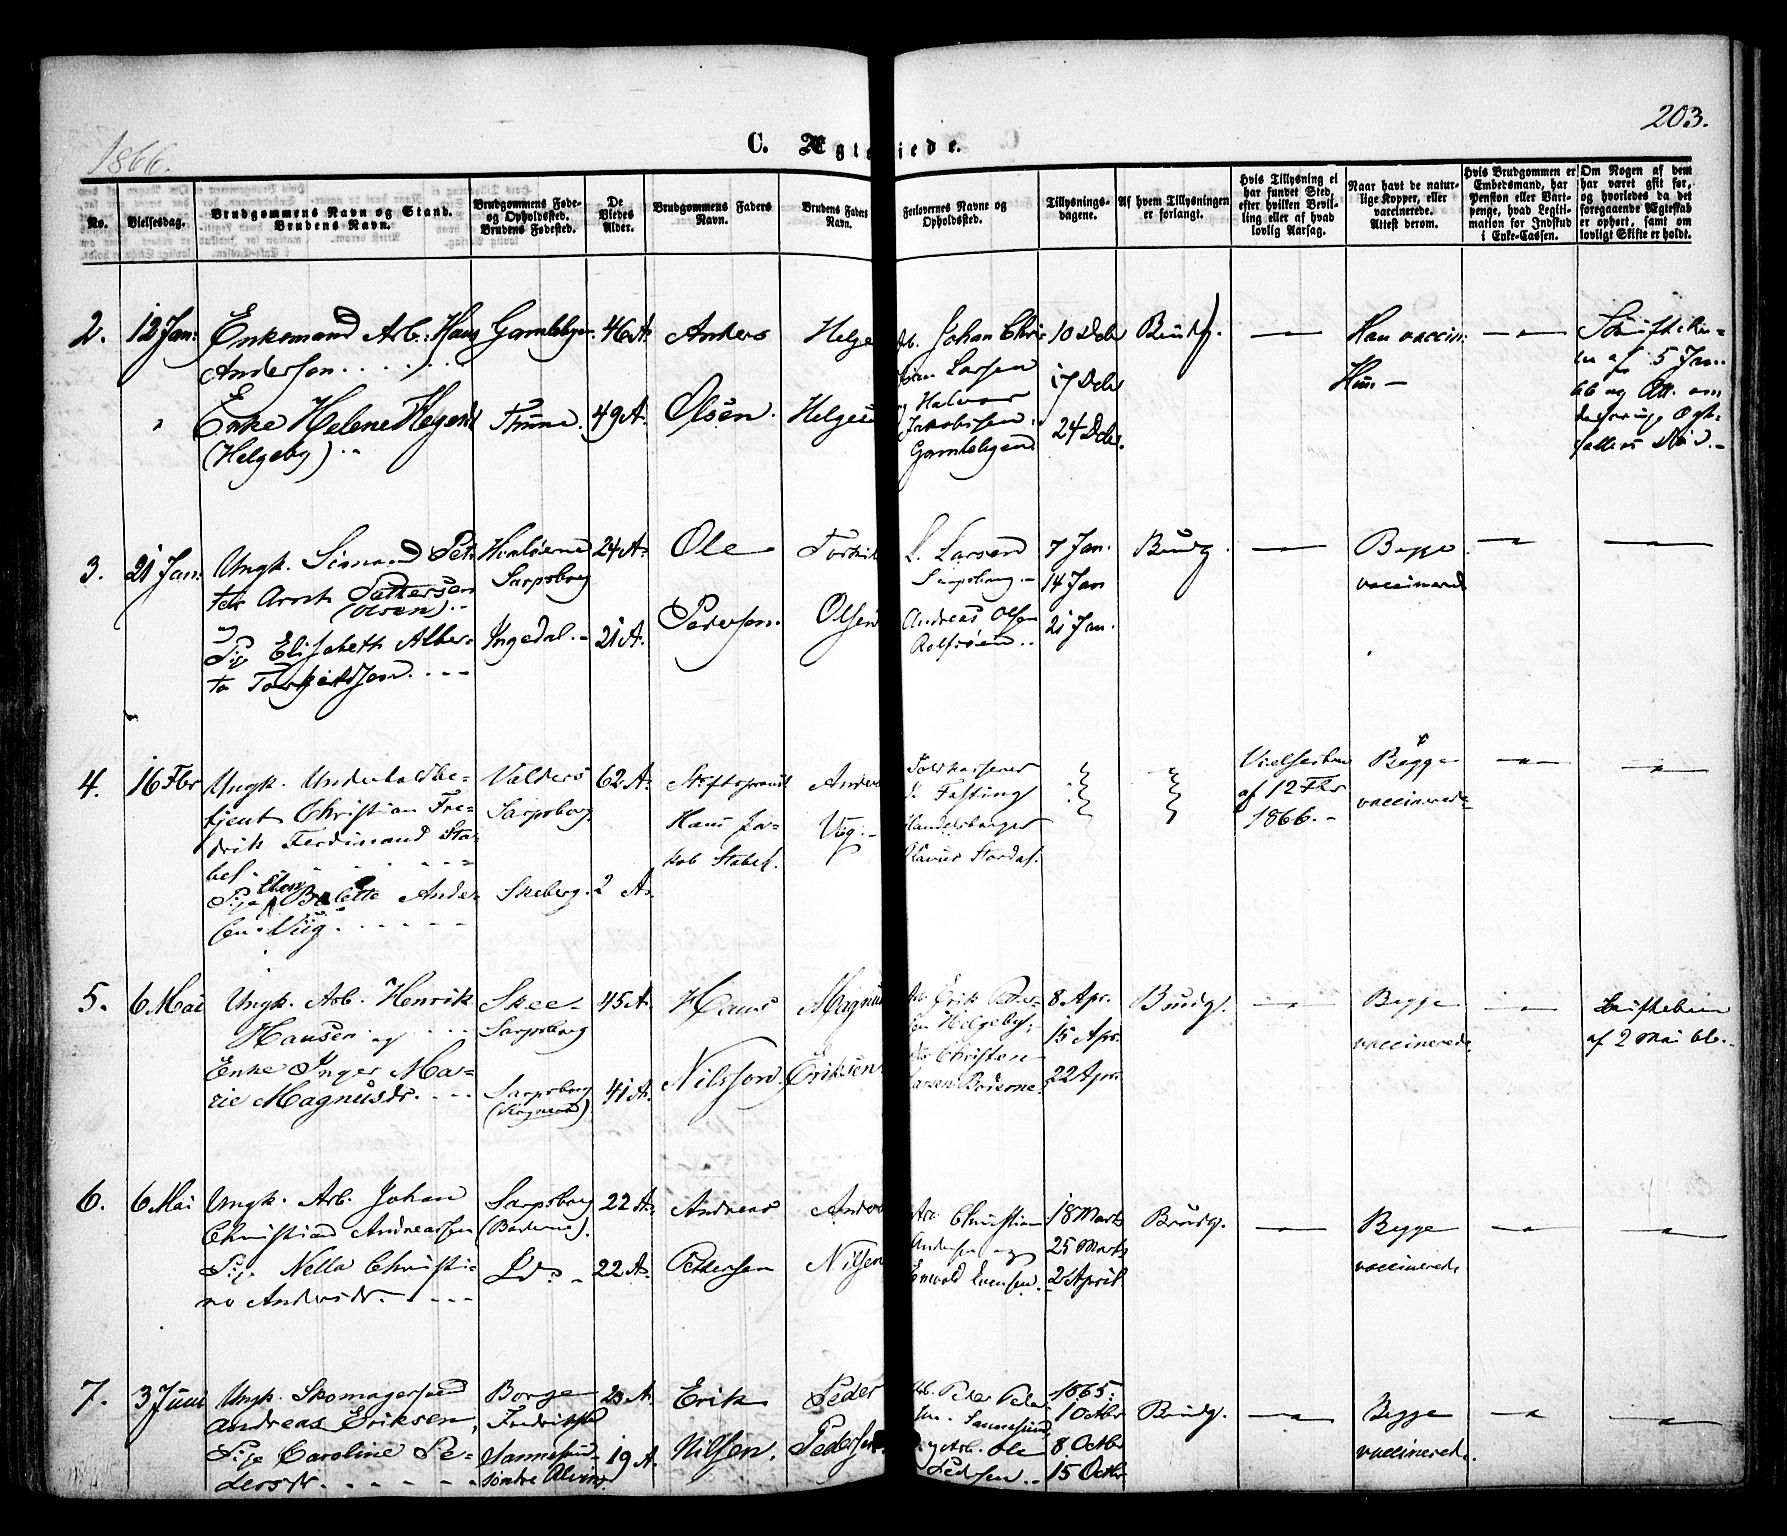 1866.
C. Ægteviede.
203.
No.
Vielsesdag.
Brudgommens Navn og Stand.
Brudens Navn.
Brudgommens Føde-
og Opholdssted.
Brudens Fødested.
De
Viedes
Alder.
Brudgommens Faders
Navn.
Brudens Faders
Navn.
Forlovernes Navne og
Opholdssted.
Tillysnings-
dagene.
Af hvem Tillysningen
er forlangt.
Hvis Tillysning ei
har fundet Sted,
efter hvilken Bevil-
ling eller af hvad
lovlig Aarsag.
Naar havt de natur-
lige Kopper, eller
vaccinerede.
Attest derom.
Hvis Brudgommen er
Embedsmand, har
Pension eller Vart-
penge, hvad Legiti-
mation for Indskud
i Enke-Cassen.
Om Nogen af dem
har været gift før,
og hvorledes da det
foregaaende Ægteskab
er ophørt, samt om
lovligt Skifte er holdt.
2.
12 Jan:
Enkemand Arb. Hans
Anderson
Enke Helene
(Helgeby)
Gamlebyen
Thune.
46 A.
49 A.
Anders
Olsen.
Helge
Johan Chri-
Larsen
Halvor
Jakobsen
Gamlebyen
10 Dcbr
17 Dcbr
24 Dcbr.
Brudg.
Han vaccin:
Hun —
af 5 Jan.
3.
21 Jan:
Ungk. Simond Pet-
ter Arnt Pettersen
(Olsen)
og
Pige Elisabeth Alber-
ta
Sarpsborg
Ingedal.
24 A.
21 A.
Ole
Pederson.
Olsen
L. Larsen
Sarpsborg.
Andreas Olsen
Rolfsøen.
7 Jan.
14 Jan
21 Jan.
Brudg.
Begge
vaccinered
4.
16 Fbr
Ungk. Underholdbe-
tjent Christian Fre-
drik Ferdinand Sta-
bel.
Pige Bolette Ander-
sen Viig.
Valders
Sarpsborg.
Skeberg.
62 A.
2 A.
Hans Ja-
kob Stabel.
Viig.
Toldkasserer
Fasting
Handelsborger
Stordal.
af 12 Fbr
1866.
Begge
vaccinerede
5.
6 Mai
Ungk. Arb. Henrik
Hansen og
Enke Inger Ma-
rie Magnusdr.
Skee
Sarpsborg
Sarpsborg
45 A.
41 A.
Hans
Nilsson
Magnus
Eriksen
Erik Peder-
sen Helgeby,
Christen
Larsen Borderne.
8 Apr.
15 Apr.
22 Apr.
Brudg.
Begge
vaccinerede.
af 2 Mai 66.
6.
6 Mai
Ungk. Arb. Johan
Christian Andreassen
Pige Nella Christi-
ne Andersdr.
Sarpsborg
(Borderne).
Do.
22 A.
22 A.
Andreas
Pettersen
Anders
Nilsen
Christian
Andersen og
Enwald Evensen.
18 Marts
25 Marts
2 April
Brudg.
Begge
vaccinerede
7.
3 Juni
Ungk. Skomagersvend
Andreas Eriksen,
Pige Caroline Pe-
dersdr.
Borge
Fredrikstad
Sannesund
søndre Alvim
23 A.
19 A.
Erik
Nilsen.
Peder
Pedersen
Peder Peder-
sen Sannesund
og Arb. Ole
Pedersen
1865:
1 Octbr
8 Octbr
15 Octbr.
Brudg.
Begge
vaccinerede.